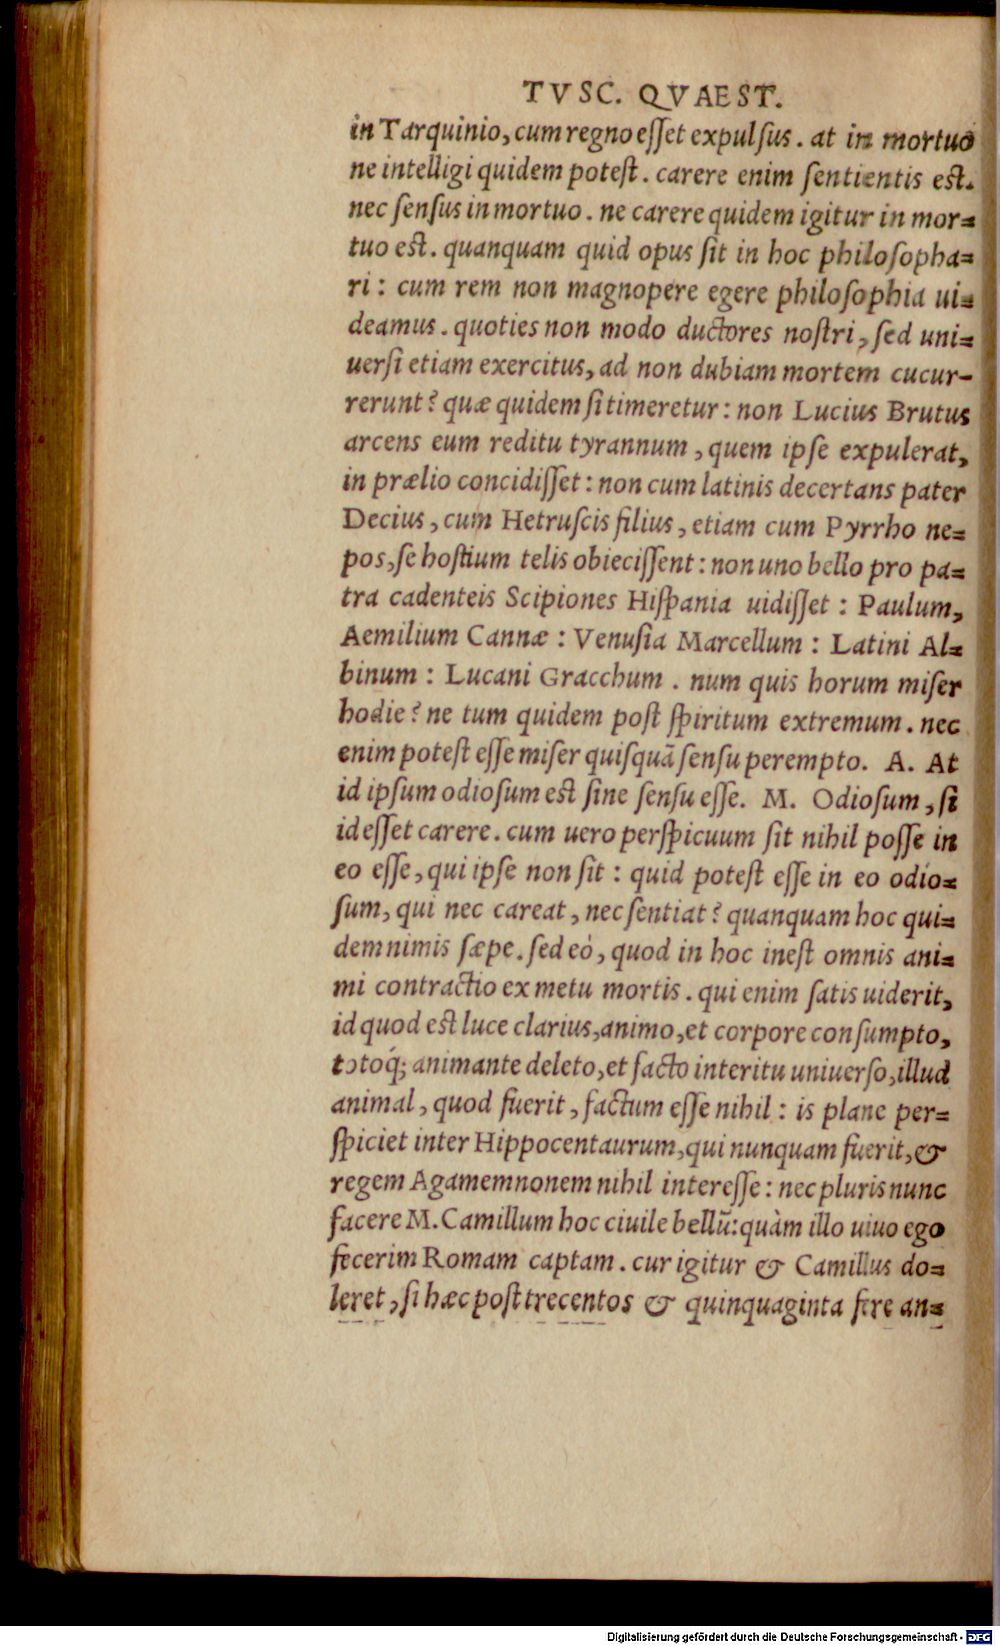 TVSC. QVAEST.
in Tarquinio, cum regno eſſet expulſus. at in mortuo
ne intelligi quidem poteſt. carere enim ſentientis eſt.
nec ſenſus in mortuo. ne carere quidem igitur in mor-
tuo eſt. quanquam quid opus ſit in hoc philoſopha-
ri: cum rem non magnopere egere philoſophia ui-
deamus. quoties non modo ductores noſtri, ſed uni-
uerſi etiam exercitus, ad non dubiam mortem cucur-
rerunt? quæ quidem ſi timeretur: non Lucius Brutus
arcens eum reditu tyrannum, quem ipſe expulerat,
in prælio concidiſſet: non cum latinis decertans pater
Decius, cum Hetruſcis filius, etiam cum Pyrrho ne-
pos, ſe hoſtium telis obieciſſent: non uno bello pro pa-
tra cadenteis Scipiones Hiſpania uidiſſet: Paulum,
Aemilium Cannæ: Venuſia Marcellum: Latini Al-
binum: Lucani Gracchum. num quis horum miſer
hodie? ne tum quidem poſt ſpiritum extremum. nec
enim poteſt eſſe miſer quiſquã ſenſu perempto. A. At
id ipſum odioſum eſt ſine ſenſu eſſe. M. Odioſum, ſi
id eſſet carere. cum uero perſpicuum ſit nihil poſſe in
eo eſſe, qui ipſe non ſit: quid poteſt eſſe in eo odio-
ſum, qui nec careat, nec ſentiat? quanquam hoc qui-
dem nimis ſæpe. ſed eò, quod in hoc ineſt omnis ani-
mi contractio ex metu mortis. qui enim ſatis uiderit,
id quod eſt luce clarius, animo, et corpore conſumpto,
totoq́; animante deleto, et facto interitu uniuerſo, illud
animal, quod fuerit, factum eſſe nihil: is plane per-
ſpiciet inter Hippocentaurum, qui nunquam fuerit, &
regem Agamemnonem nihil intereſſe: nec pluris nunc
facere M. Camillum hoc ciuile bellũ: quàm illo uiuo ego
fecerim Romam captam. cur igitur & Camillus do-
leret, ſi hæc poſt trecentos & quinquaginta fere an-
Digitalisierung gefördert durch die Deutsche Forschungsgemeinschaft - DFG